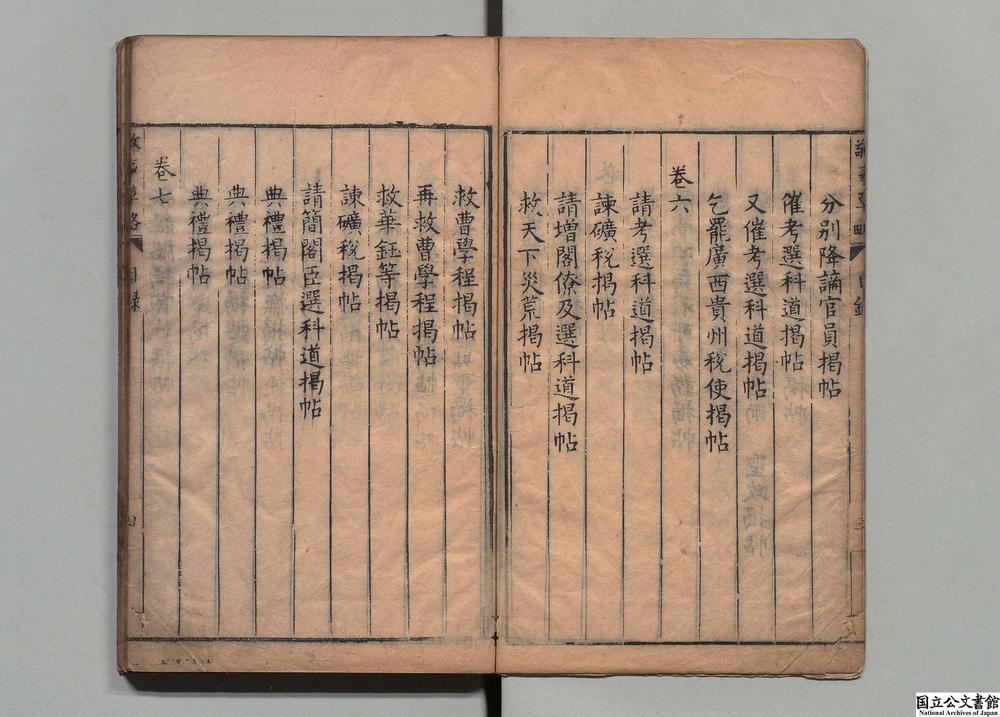 分別降謫官員揭帖
催考選科道揭帖
又催考選科道揭帖
乞罷廣西貴州稅使揭帖
卷六
請考選科道揭帖
諫礦稅揭帖
請增閣僚及選科道揭帖
救天下災荒揭帖
救曹學程揭帖
再救曹學程揭帖
救華鈺等揭帖
諫礦稅揭帖
請簡閣臣選科道揭帖
典禮揭帖
典禮揭帖
典禮揭帖
卷七
目錄
四
国立公文書館
National Archives of Japan